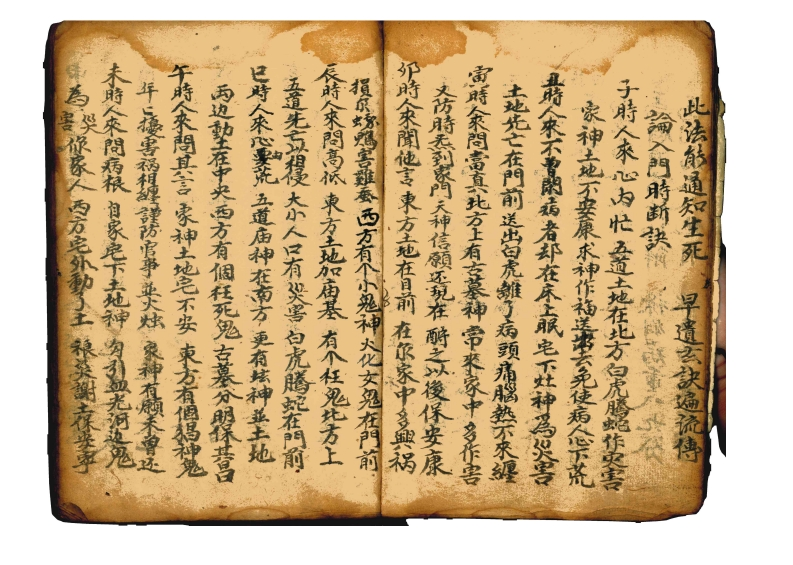 此法能通知生死 早遺玄訣遍流傳
論入門時断訣
子時人來心內忙 五道土地在北方 白虎騰蛇作災害
家神土地不安康 求神作福送 免使病人心下荒
丑時人來不曾閑 病者却在床上眠 宅下灶神為災害
土地先亡在門前 送出白虎離了病 頭痛脳熱不來纏
寅時人來問當真 北方上有古墓神 常來家中多作害
又防時炁到家門 天神信願还現在 酧之以後保安康
卯時人來聞他言 東方土地在目前 在你家中多興禍
損 鴨害雞蚕 西方有个小鬼神 火化女鬼在門前
辰時人來問高低 東方土地加庙基 有个枉鬼北方上
五道先亡以相侵 大小人口有災害 白虎騰蛇在門前
巳時人來心裡荒 五道庙神在南方 更有坛神並土地
两边動土在中央 西方有個枉死鬼 古墓分明保昔日
午時人來問直言 家神土地宅不安 東方有個猖神鬼
年亡接害祸相纏 謹防官事並火烛 家神有願未曾还
未時人來問病根 自家宅下土地神 勾引血光河边鬼
為災害你家人 两方宅外動了土 禳災謝土保安寧